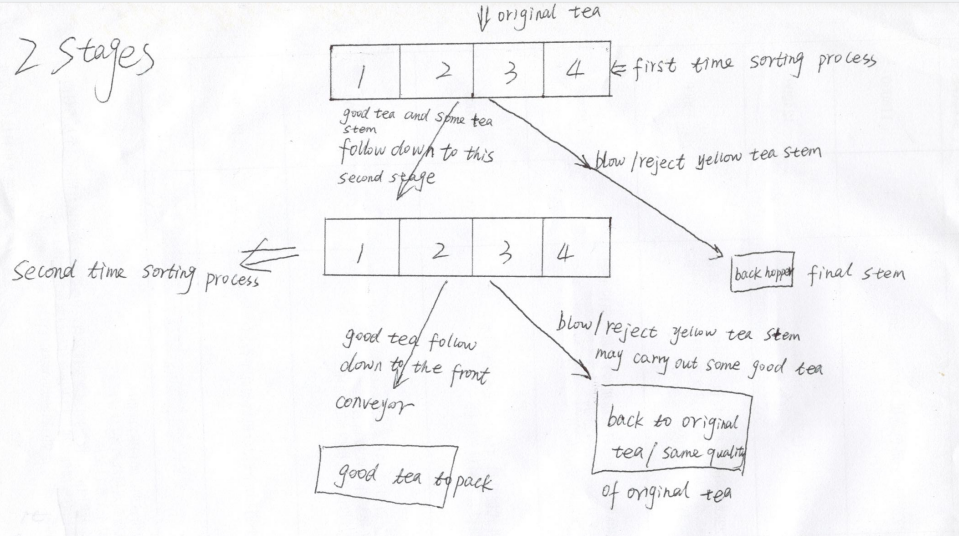 2 stages
original tea
1 2 3 4
first time sorting process
good tea and some tea
stem
follow down to this
second stage
blow/reject yellow tea stem
1 2 3 4
second time sorting process
back hopper
final stem
good tea follow
down to the front
conveyor
blow/reject yellow tea stem
may carry out some good tea
back to original
tea/same quality
of original tea
good tea to pack